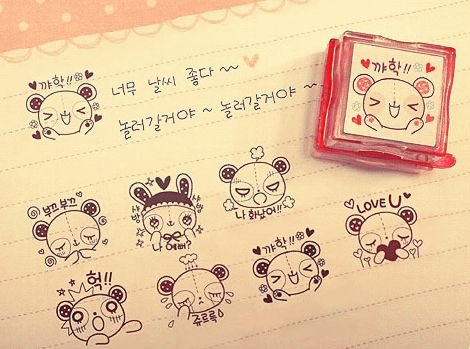 꺄학!!
너무 날씨 좋다 ~~
놀러갈거야 ~ 놀러갈거야 ~
꺄학!!
부끄부끄
나 예뻐?
나 화났어!!
LOVE U
헉!!
쥬르륵
꺄학!!